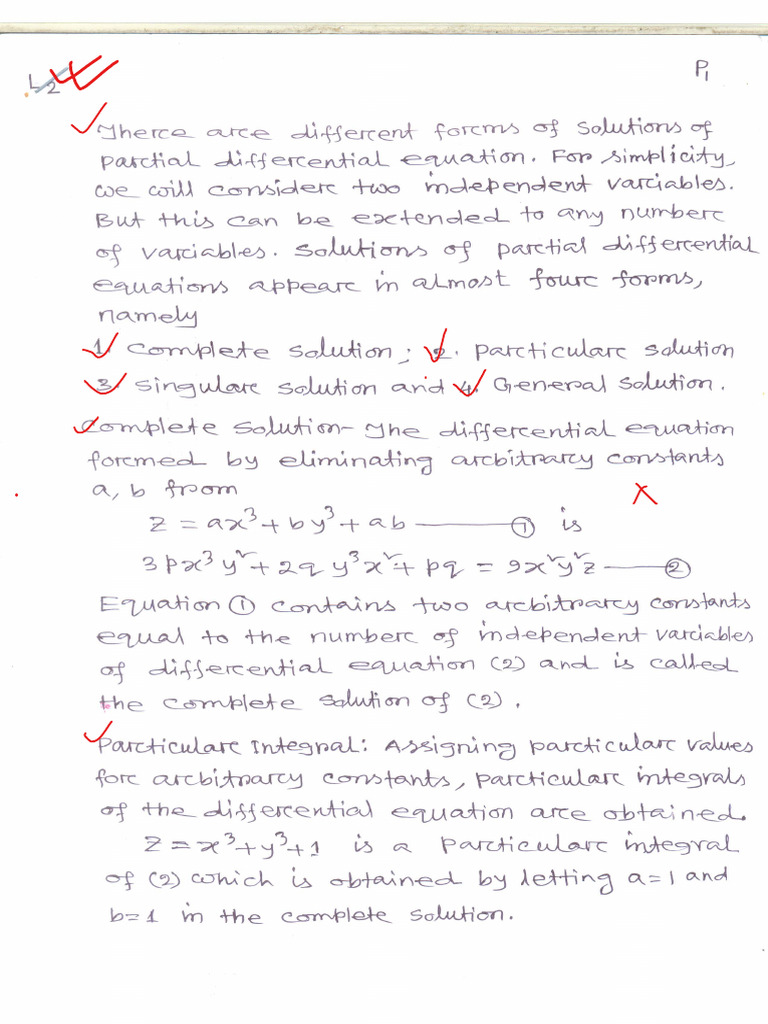 L2 P1
There are different forms of solutions of
partial differential equation. For simplicity,
we will consider two independent variables.
But this can be extended to any number
of variables. Solutions of partial differential
equations appear in almost four forms,
namely
1. Complete solution; 2. particular solution
3 singular solution and 4. General solution.
Complete solution- The differential equation
formed by eliminating arbitrary constants
a, b from
z = ax³ + by³ + ab ——— ① is
3px³y² + 2qy³x² + pq = 9x²y²z ——— ②
Equation ① contains two arbitrary constants
equal to the number of independent variables
of differential equation (2) and is called
the complete solution of (2).
Particular Integral: Assigning particular values
for arbitrary constants, particular integrals
of the differential equation are obtained.
z = x³+y³+1 is a particular integral
of (2) which is obtained by letting a=1 and
b=1 in the complete solution.